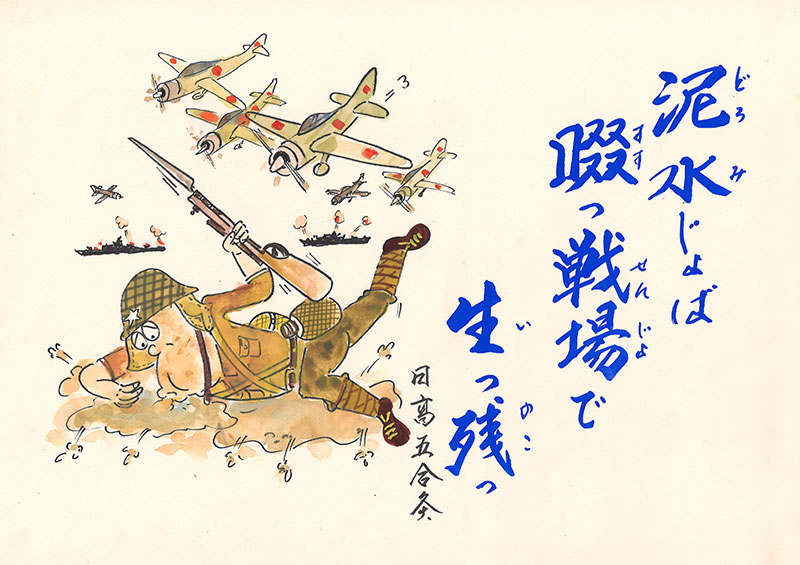 泥水じょば
どろみ
啜っ戦場で
すす せんじょ
生っ残っ
い のこ
日高五合灸